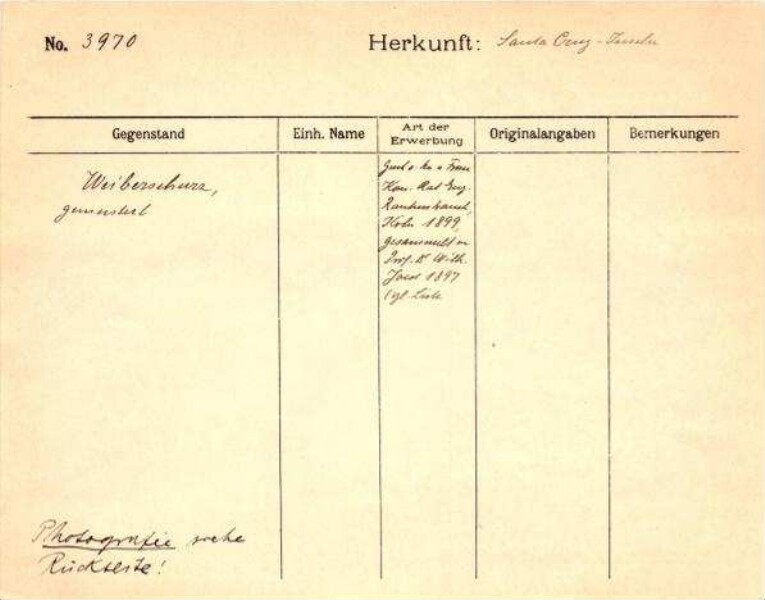 No. 3970
Herkunft: Santa Cruz-Inseln
Gegenstand
Einh. Name
Art der
Erwerbung
Originalangaben
Bemerkungen
Weiberschurz,
gemustert
Frau
Kom. Rat Eug.
Rautenstrauch,
Köln 1899,
gesammelt v.
Prof. Dr Wilh.
Joest 1897
vgl. Liste
Photografie siehe
Rückseite!